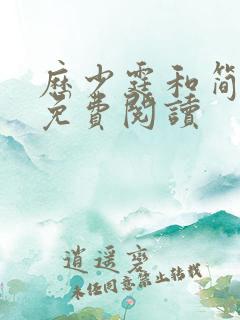 歷少霆和簡
免費閱讀
逍遥
未经同意禁止转载